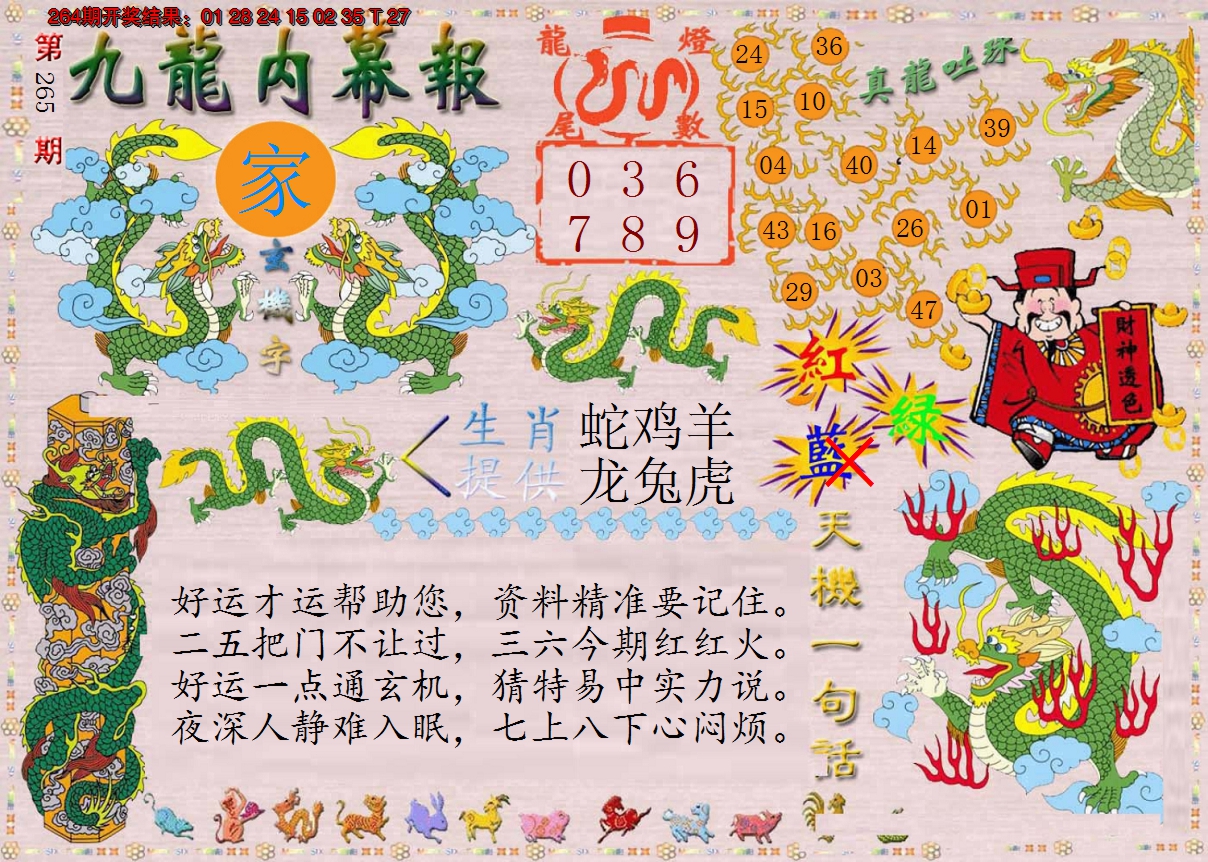 264期开奖结果：01 28 24 15 02 35 T 27
第265期
九龍内幕報
家
玄機字
龍燈
尾數
0 3 6
7 8 9
真龍吐珠
24 36
15 10
04 40 14 39
43 16 26 01
29 03 47
財神透色
紅
綠
藍
生肖提供
蛇鸡羊
龙兔虎
天機一句話
好运才运帮助您，资料精准要记住。
二五把门不让过，三六今期红红火。
好运一点通玄机，猜特易中实力说。
夜深人静难入眠，七上八下心闷烦。